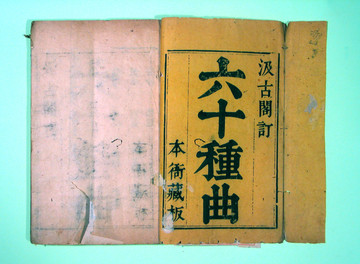 汲古閣訂
六十種曲
本衙藏板